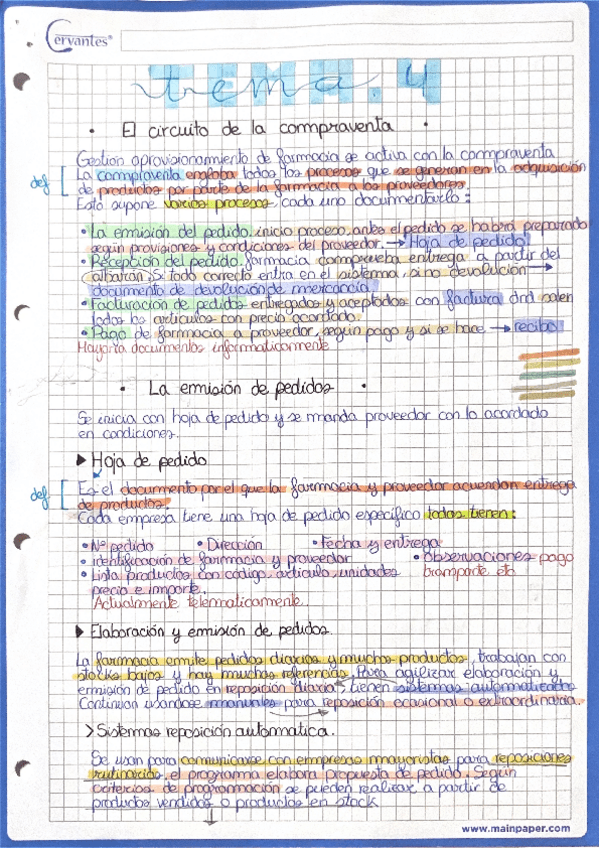 Cervantes
tema.4
• El circuito de la commpraventa •
Gestión aprovisionamiento de farmacia se activa con la compraventa
def [ La compraventa engloba todos los procesos que se generan en la adquisición
de productos por parte de la farmacia a los proveedores.
Esto supone varios procesos, cada uno documentarlo:
• La emisión del pedido, inicio proceso, antes el pedido se habrá preparado
según provisiones y condiciones del proveedor. → Hoja de pedido.
• Recepción del pedido, farmacia comprueba entrega a partir del
albarán, Si todo correcto entra en el sistema, si no devolución →
documento de devolución de mercancia.
• Facturación de pedidos entregados y aceptados con factura dnd salen
todos los articulos con precio acordado.
• Pago de farmacia a proveedor, según pago y si se hace → recibo
Mayoría documentos informaticamente
• La emisión de pedidos •
Se inicia con hoja de pedido y se manda proveedor con lo acordado
en condiciones.
▶ Hoja de pedido
def [ Es el documento por el que la farmacia y proveedor acuerdan entrega
de productos.
Cada empresa tiene una hoja de pedido específico todas tienen:
• Nº pedido • Dirección • Fecha y entrega
• identificación de farmacia y proveedor • observaciones pago
• Lista productos con código, artículo, unidades transporte etc
precio e importe.
Actualmente telematicamente.
▶ Elaboración y emisión de pedidos.
La farmacia emite pedidos diarios y muchos productos, trabajan con
stocks bajos y hay muchas referencias. Para agilizar elaboración y
emisión de pedido en reposición diaria, tienen sistemas automatizados
Continuan usandose manuales para reposición ocasional o extraordinaria.
> Sistemas reposición automatica.
Se usan para comunicarse con empresas mayoristas para reposiciones
rutinarias, el programa elabora propuesta de pedido. Según
criterios de programación se pueden realizar a partir de
productos vendidos o productos en stock
www.mainpaper.com